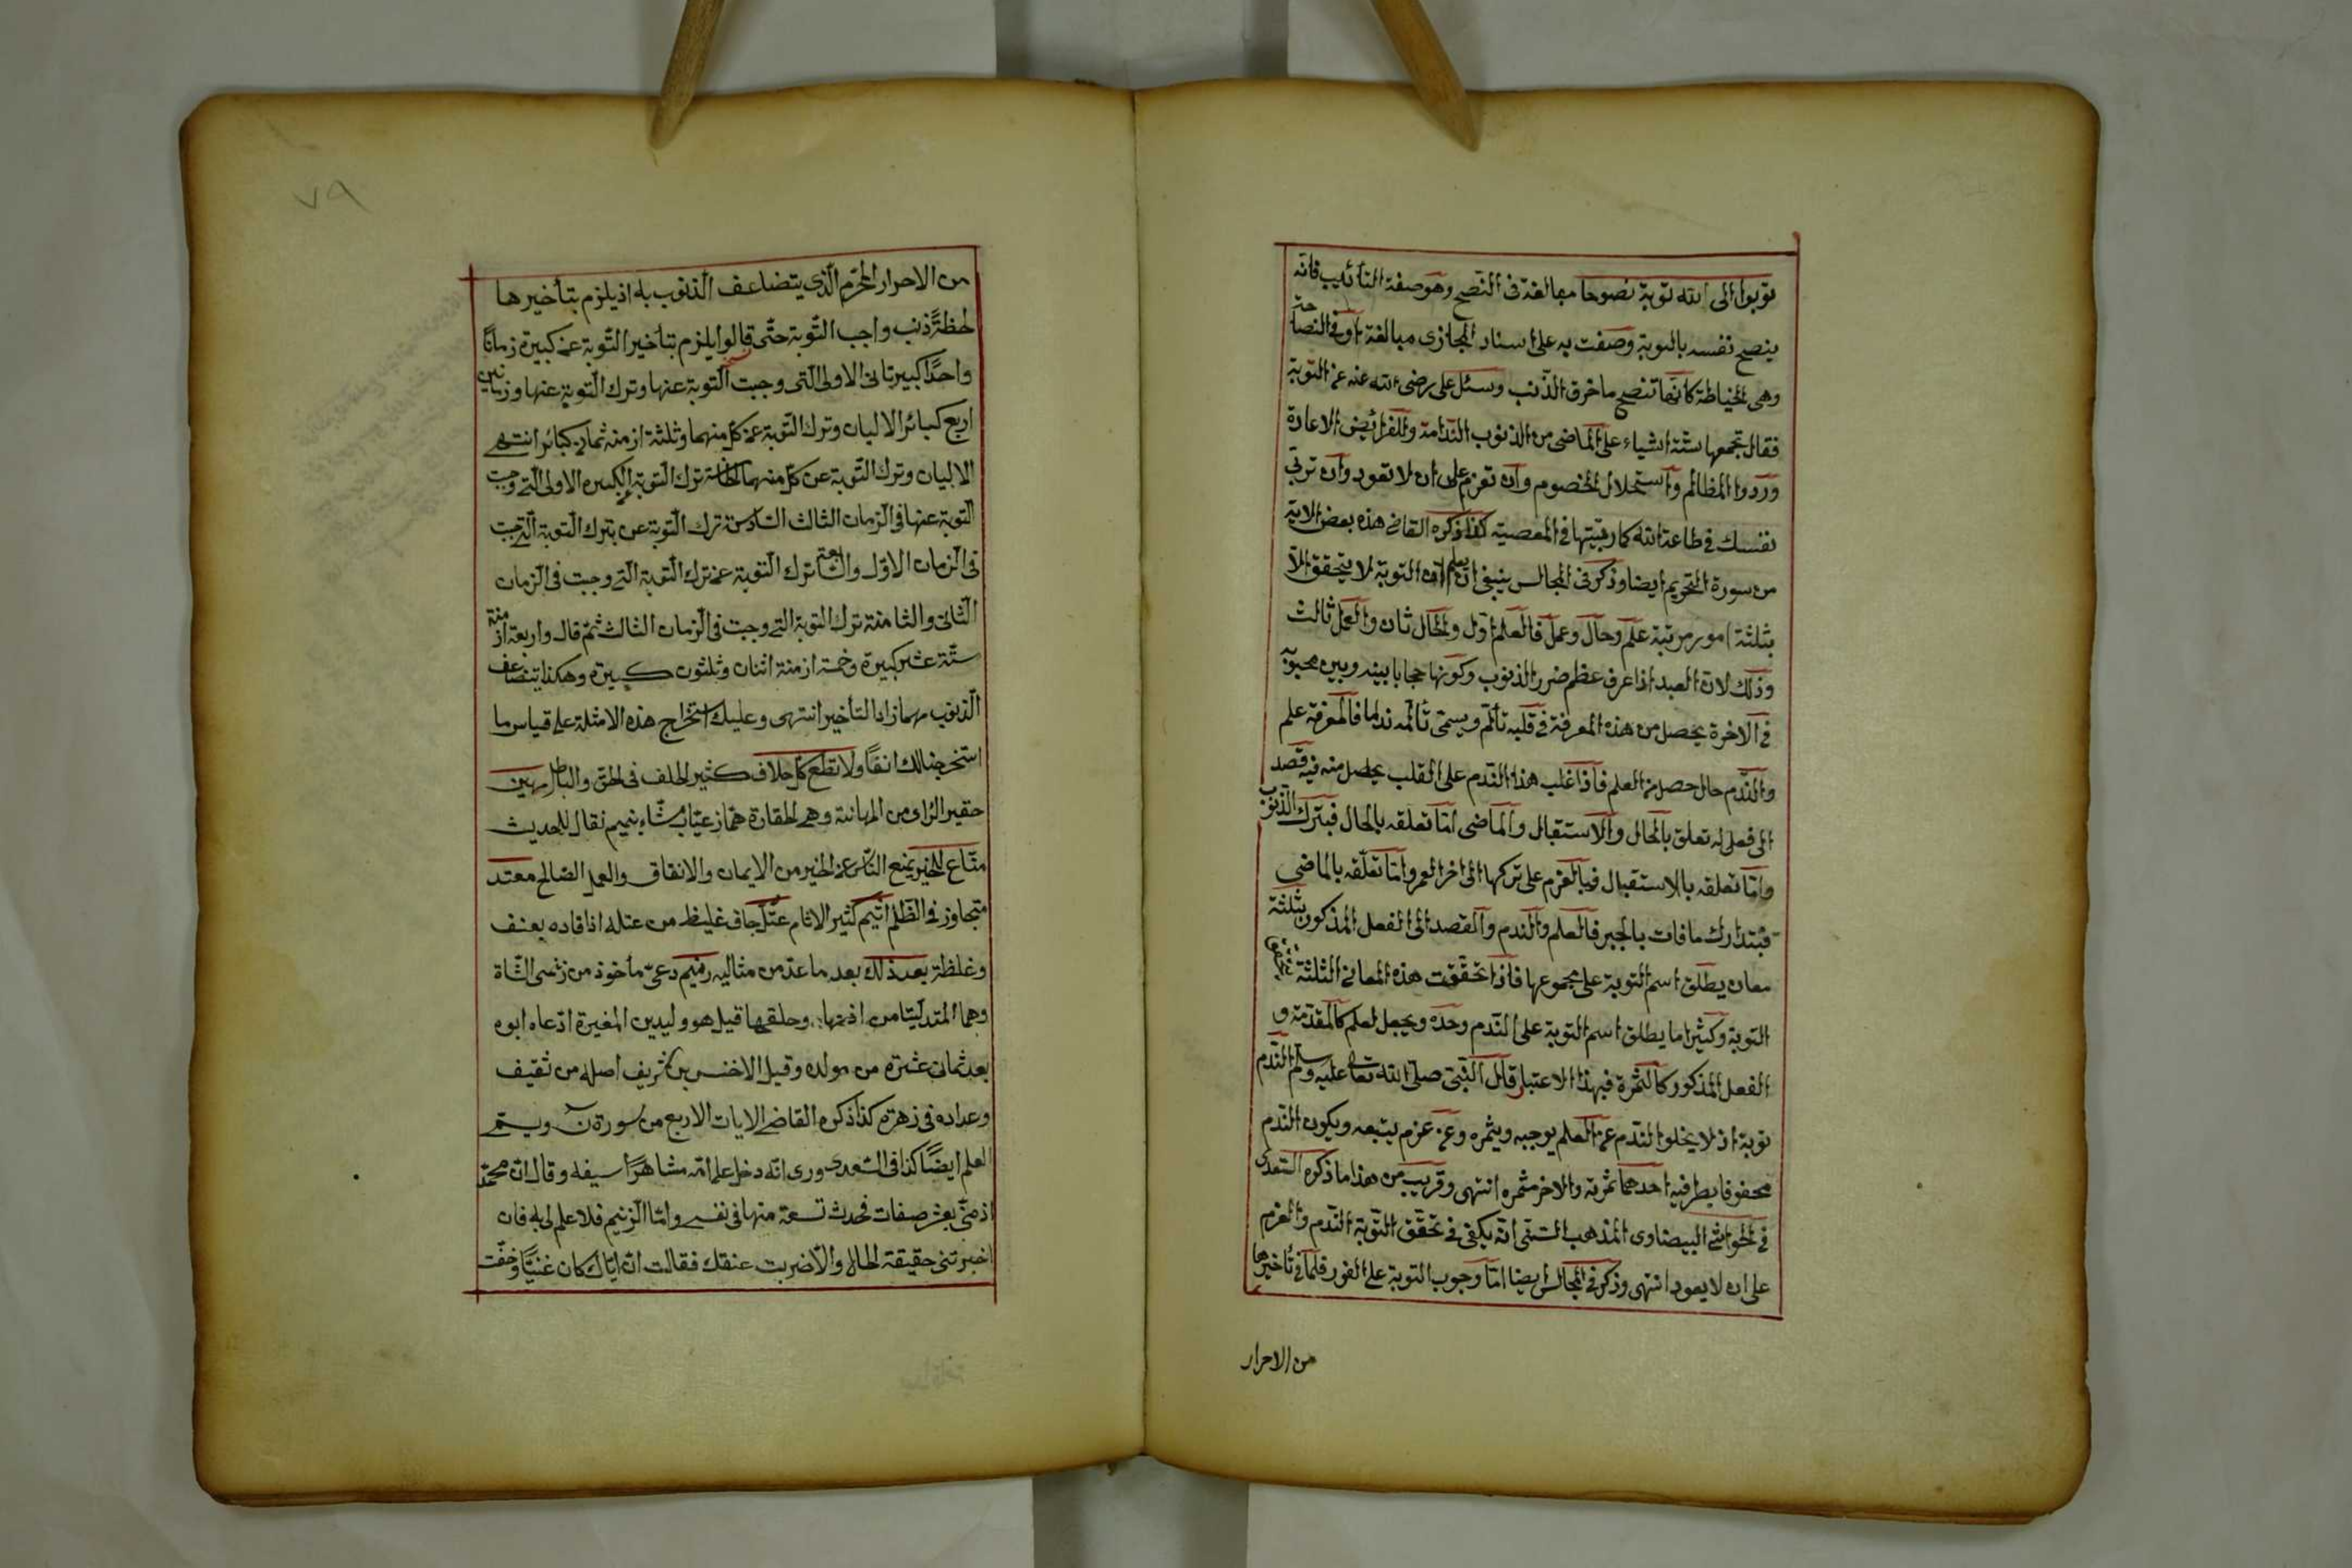 توبوا الى الله توبة نصوحا مبالغة فى النصح وهو صفة التائب فانه
ينصح نفسه بالتوبة وصفت به على اسناد المجازى مبالغة او فى النصاحة
وهى الخياطة كانها تنصح ما خرق الذنب وسئل على رضى الله عنه عن التوبة
فقال تجمعها ستة اشياء على الماضى من الذنوب الندامة وللفرائض الاعادة
وردوا المظالم واستحلال الخصوم وان تعزم على ان لا تعود وان تربى
نفسك فى طاعة الله كما ربيتها فى المعصية كذا ذكره القاضى هذه بعض الاية
من سورة التحريم ايضا وذكر فى المجالس ينبغى ان يعلم ان التوبة لا يتحقق الا
بثلثة امور مرتبة علم وحال وعمل فالعلم اول والحال ثان والعمل ثالث
وذلك لان العبد اذا عرف عظم ضرر الذنوب وكونها حجابا بينه وبين محبوبه
فى الاخرة يحصل من هذه المعرفة فى قلبه تألم ويسمى تألمه ندما فالمعرفة علم
والندم حال حصل من العلم فاذا غلب هذا الندم على القلب يحصل منه فيه قصد
الى فعل له تعلق بالحال والاستقبال والماضى اما تعلقه بالحال فبترك الذنوب
واما تعلقه بالاستقبال فبالعزم على تركها الى اخر العمر واما تعلقه بالماضى
فبتدارك ما فات بالجبر فالعلم والندم والقصد الى الفعل المذكور ثلثة
معان يطلق اسم التوبة على مجموعها فاذا تحققت هذه المعانى الثلثة تحقق
التوبة وكثيرا ما يطلق اسم التوبة على الندم وحده ويجعل العلم كالمقدمة و
الفعل المذكور كالثمرة فبهذا الاعتبار قال النبى صلى الله تعالى عليه وسلم الندم
توبة اذ لا يخلوا الندم عن العلم يوجبه ويثمره وعن عزم يتبعه ويكون الندم
محفوفا بطرفيه احدهما ثمرته والاخر مثمره انتهى وقريب من هذا ما ذكره السعدى
فى الحواشى البيضاوى المذهب السنى انه يكفى فى تحقق التوبة الندم والعزم
على ان لا يعود انتهى وذكر فى المجالس ايضا اما وجوب التوبة على الفور فلما فى تأخيرها
من الاحرار
٧٩
من الاحرار المحرم الذى يتضاعف الذنوب به اذ يلزم بتأخيرها
لحظة ذنب واجب التوبة حتى قالوا يلزم بتأخير التوبة عن كبيرة زمانا
واحدا كبيرتان الاولى التى وجبت التوبة عنها وترك التوبة عنها وزمانين
اربع كبائر الاوليان وترك التوبة عن كل منهما وثلثة ازمنة ثمان كبائر انتهى
الاوليان وترك التوبة عن كل منهما ترك التوبة الكبيرة الاولى التى وجبت
التوبة عنها فى الزمان الثالث السادسة ترك التوبة عن ترك التوبة التى وجبت
فى الزمان الاول والسابعة ترك التوبة عن ترك التوبة التى وجبت فى الزمان
الثانى والثامنة ترك التوبة التى وجبت فى الزمان الثالث ثم قال واربعة ازمنة
ستة عشر كبيرة وخمسة ازمنة اثنان وثلثون كبيرة وهكذا يتضاعف
الذنوب مهما زاد التأخير انتهى وعليك استخراج هذه الامثلة على قياس ما
استخرجنا لك انفا ولا تطع كل حلاف كثير الحلف فى الحق والباطل مهين
حقير الراى من المهانة وهى الحقارة هماز عياب مشاء بنميم نقال للحديث
مناع للخير يمنع الناس عن الخير من الايمان والانفاق والعمل الصالح معتد
متجاوز فى الظلم اثيم كثير الاثام عتل جاف غليظ من عتله اذا قاده بعنف
وغلظة بعد ذلك بعد ما عد من مثاليه زنيم دعى مأخوذ من زنمى الشاة
وهما المتدليتا من اذنها وحلقها قيل هو وليد بن المغيرة ادعاه ابوه
بعد ثمانى عشرة من مولده وقيل الاخنس بن شريف اصله من ثقيف
وعداده فى زهرة كذا ذكره القاضى الايات الاربع من سورة ن ويسمى
العلم ايضا كذا فى السعدى روى انه دخل على امه شاهرا سيفه وقال ان محمدا
ذمنى بعشر صفات فحدث تسعة منها فى نفسى واما الزنيم فلا علم لى به فان
اخبرتنى حقيقة الحال والا ضربت عنقك فقالت ان اباك كان غنيا وخفت